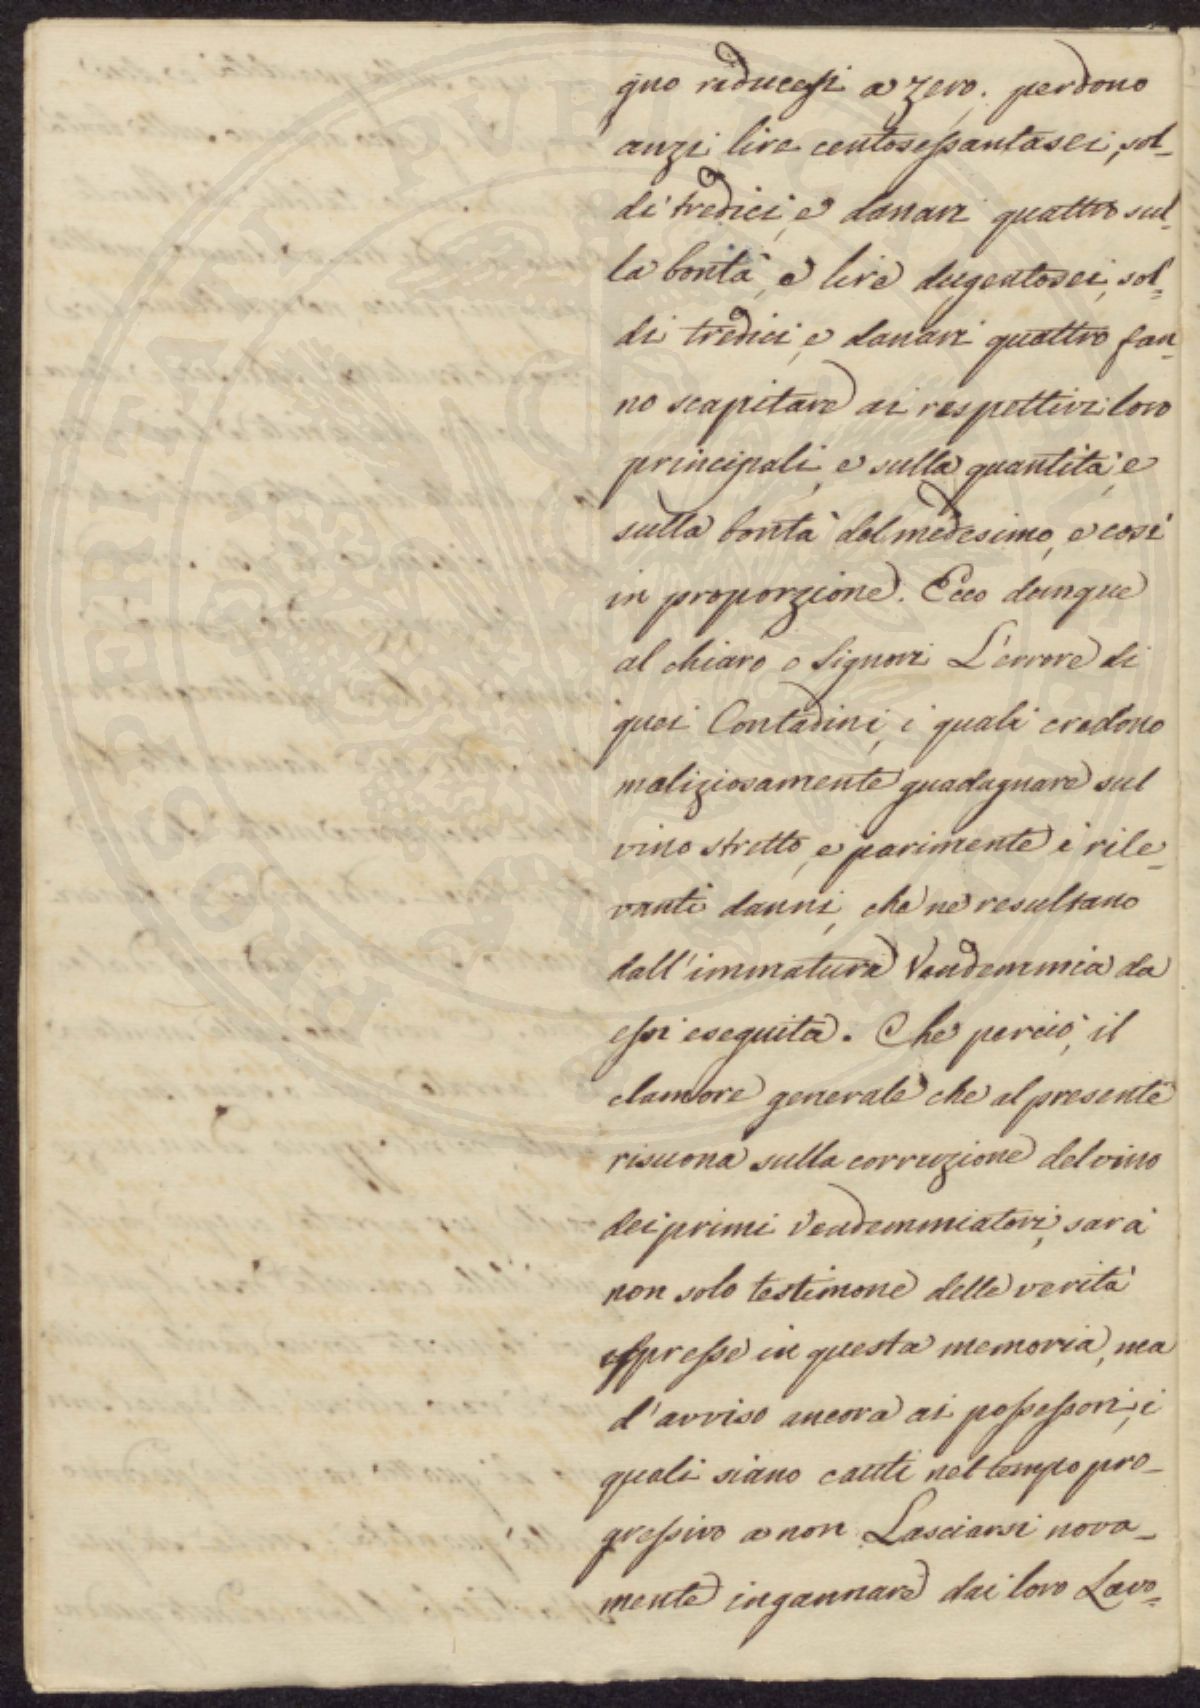 gno riducesi a zero. perdono
anzi lire centosessantasei, sol-
di tredici, e danari quattro sul-
la bontà, e lire dugentosei, sol-
di tredici, e danari quattro fan-
no scapitare ai respettivi loro
principali, e sulla quantità, e
sulla bontà del medesimo, e così
in proporzione. Ecco dunque
al chiaro o Signori L'errore di
quei Contadini, i quali credono
maliziosamente guadagnare sul
vino stretto, e parimente i rile-
vanti danni, che ne resultano
dall'immatura Vendemmia da
essi eseguita. Che perciò, il
clamore generale che al presente
risuona sulla corruzione del vino
dei primi Vendemmiatori, sarà
non solo testimone delle verità
espresse in questa memoria, ma
d'avviso ancora ai possessori, i
quali siano cauti nel tempo pro-
gressivo a non Lasciarsi nova-
mente ingannare dai loro Lavo-